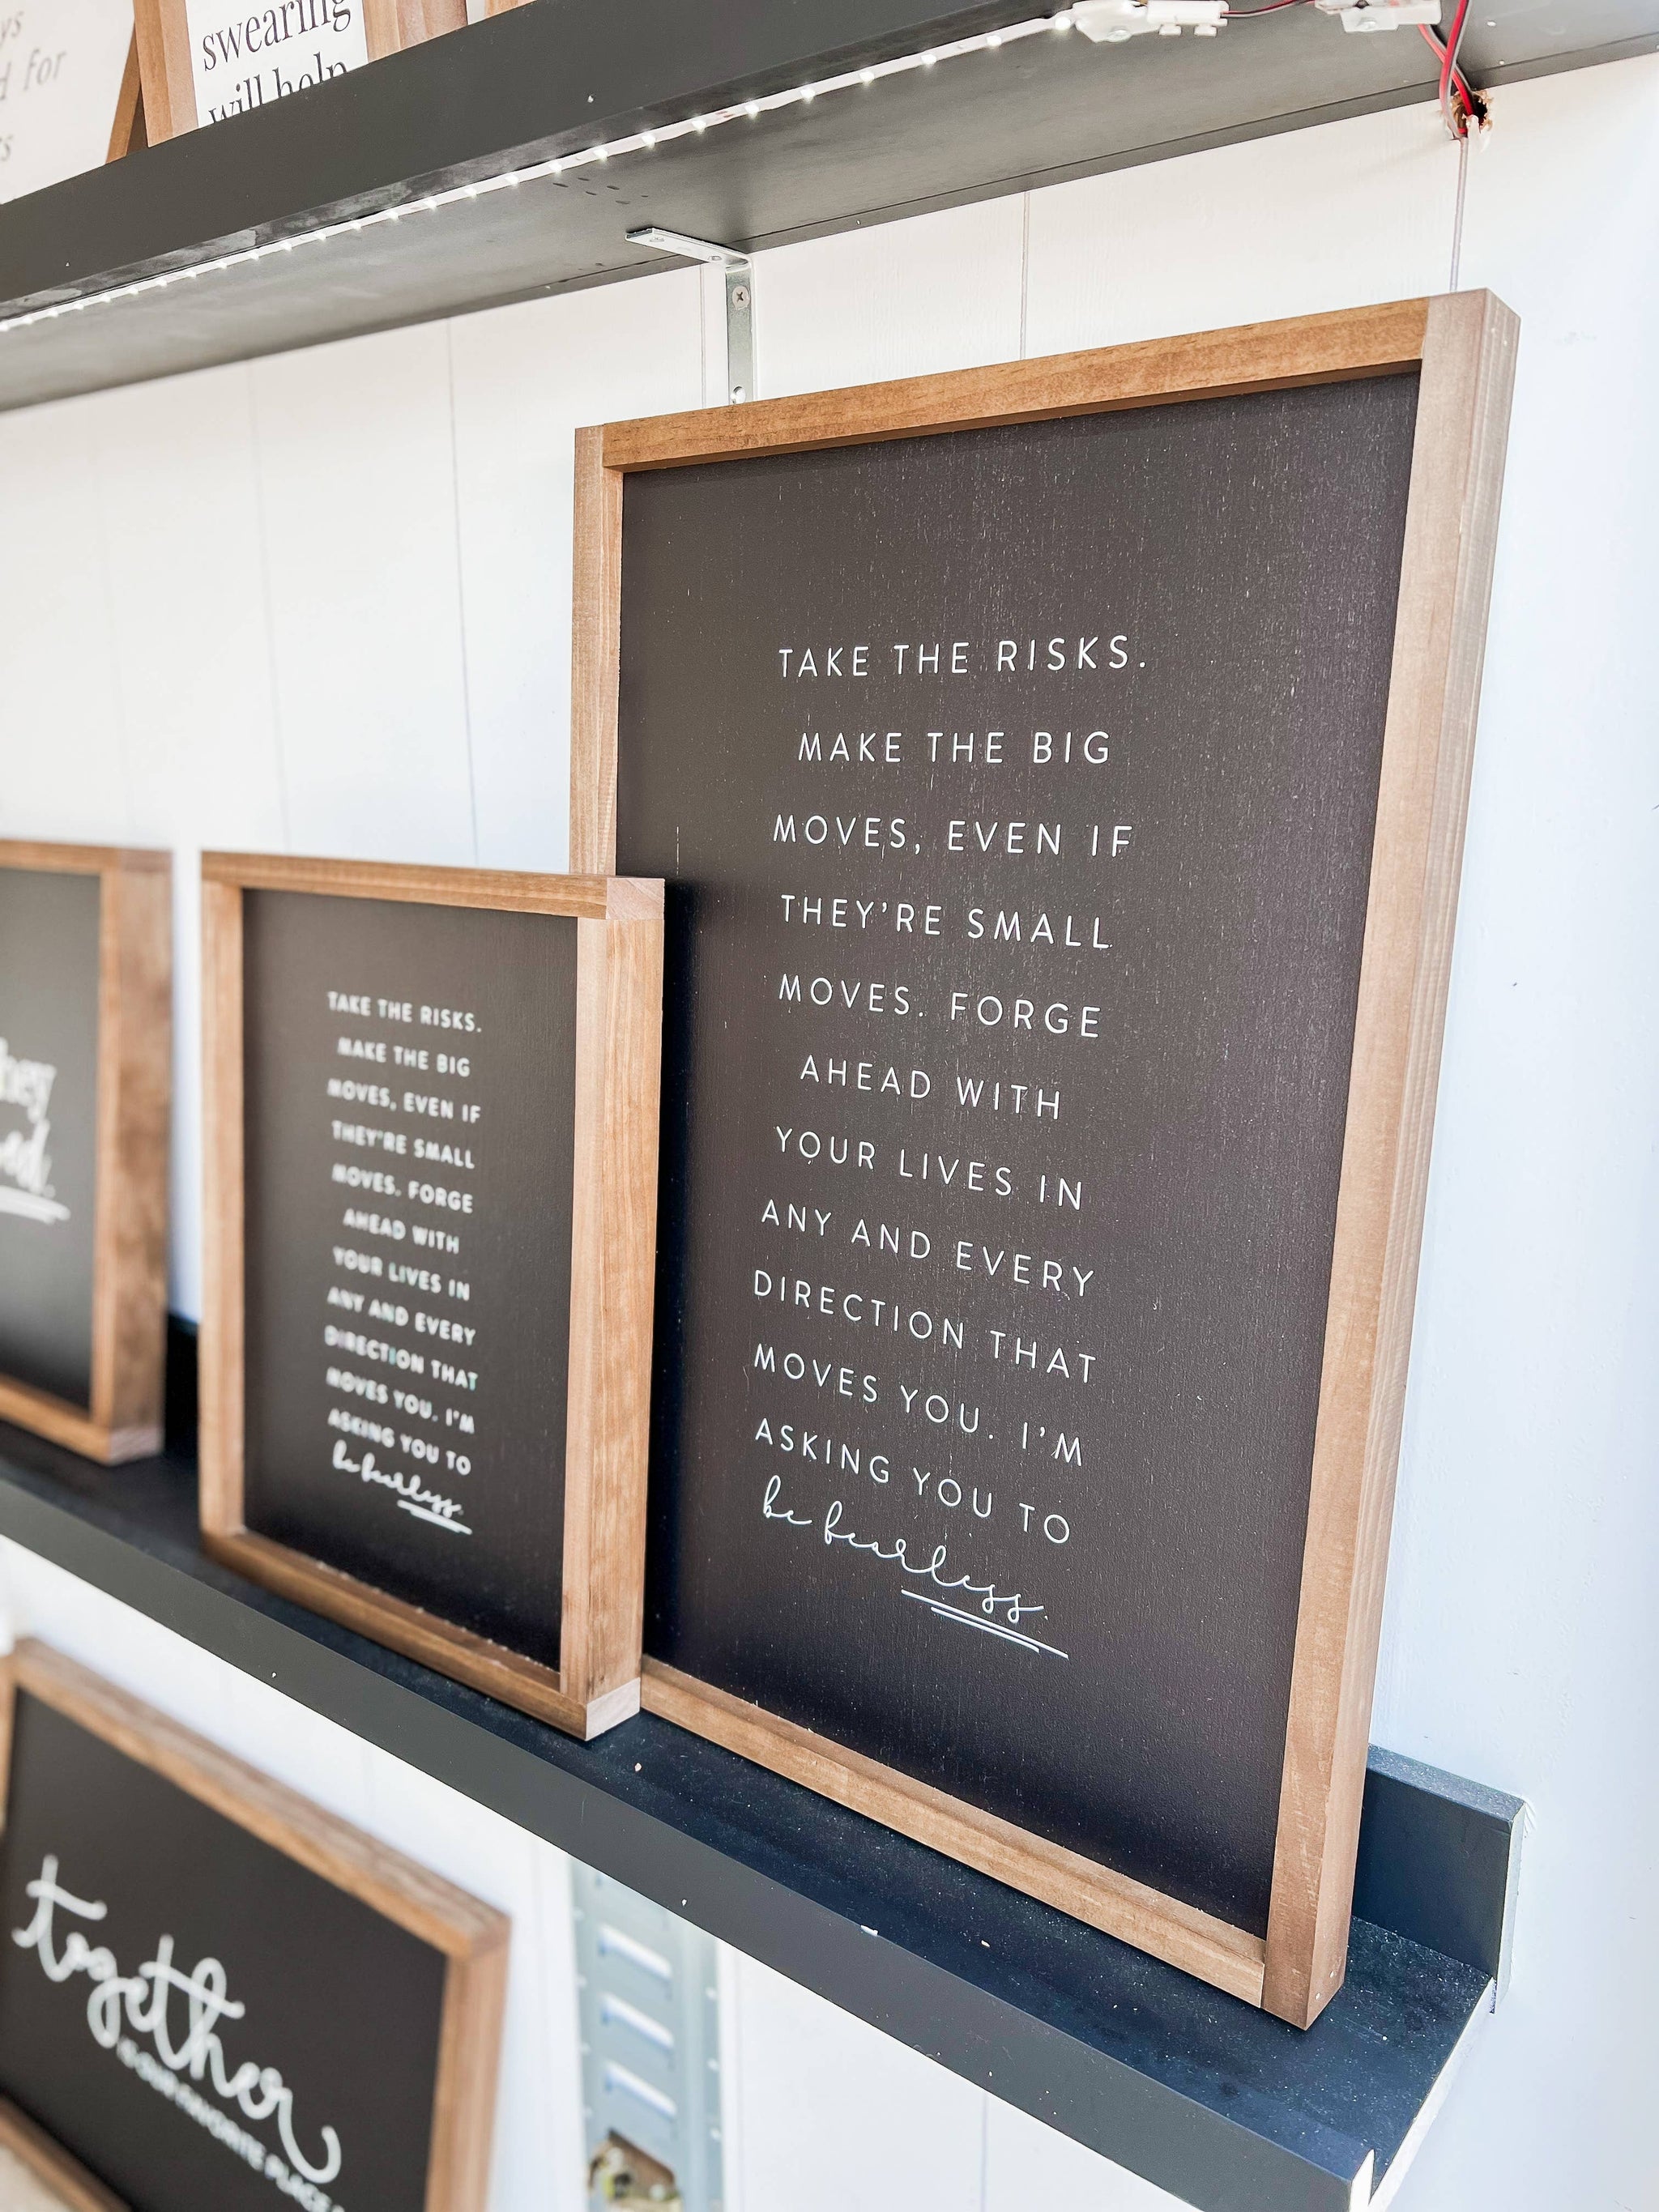 swearing
will help
d for
TAKE THE RISKS.
MAKE THE BIG
MOVES, EVEN IF
THEY'RE SMALL
MOVES. FORGE
AHEAD WITH
YOUR LIVES IN
ANY AND EVERY
DIRECTION THAT
MOVES YOU. I'M
ASKING YOU TO
be fearless.
TAKE THE RISKS.
MAKE THE BIG
MOVES, EVEN IF
THEY'RE SMALL
MOVES. FORGE
AHEAD WITH
YOUR LIVES IN
ANY AND EVERY
DIRECTION THAT
MOVES YOU. I'M
ASKING YOU TO
be fearless.
together
IS OUR FAVORITE PLACE